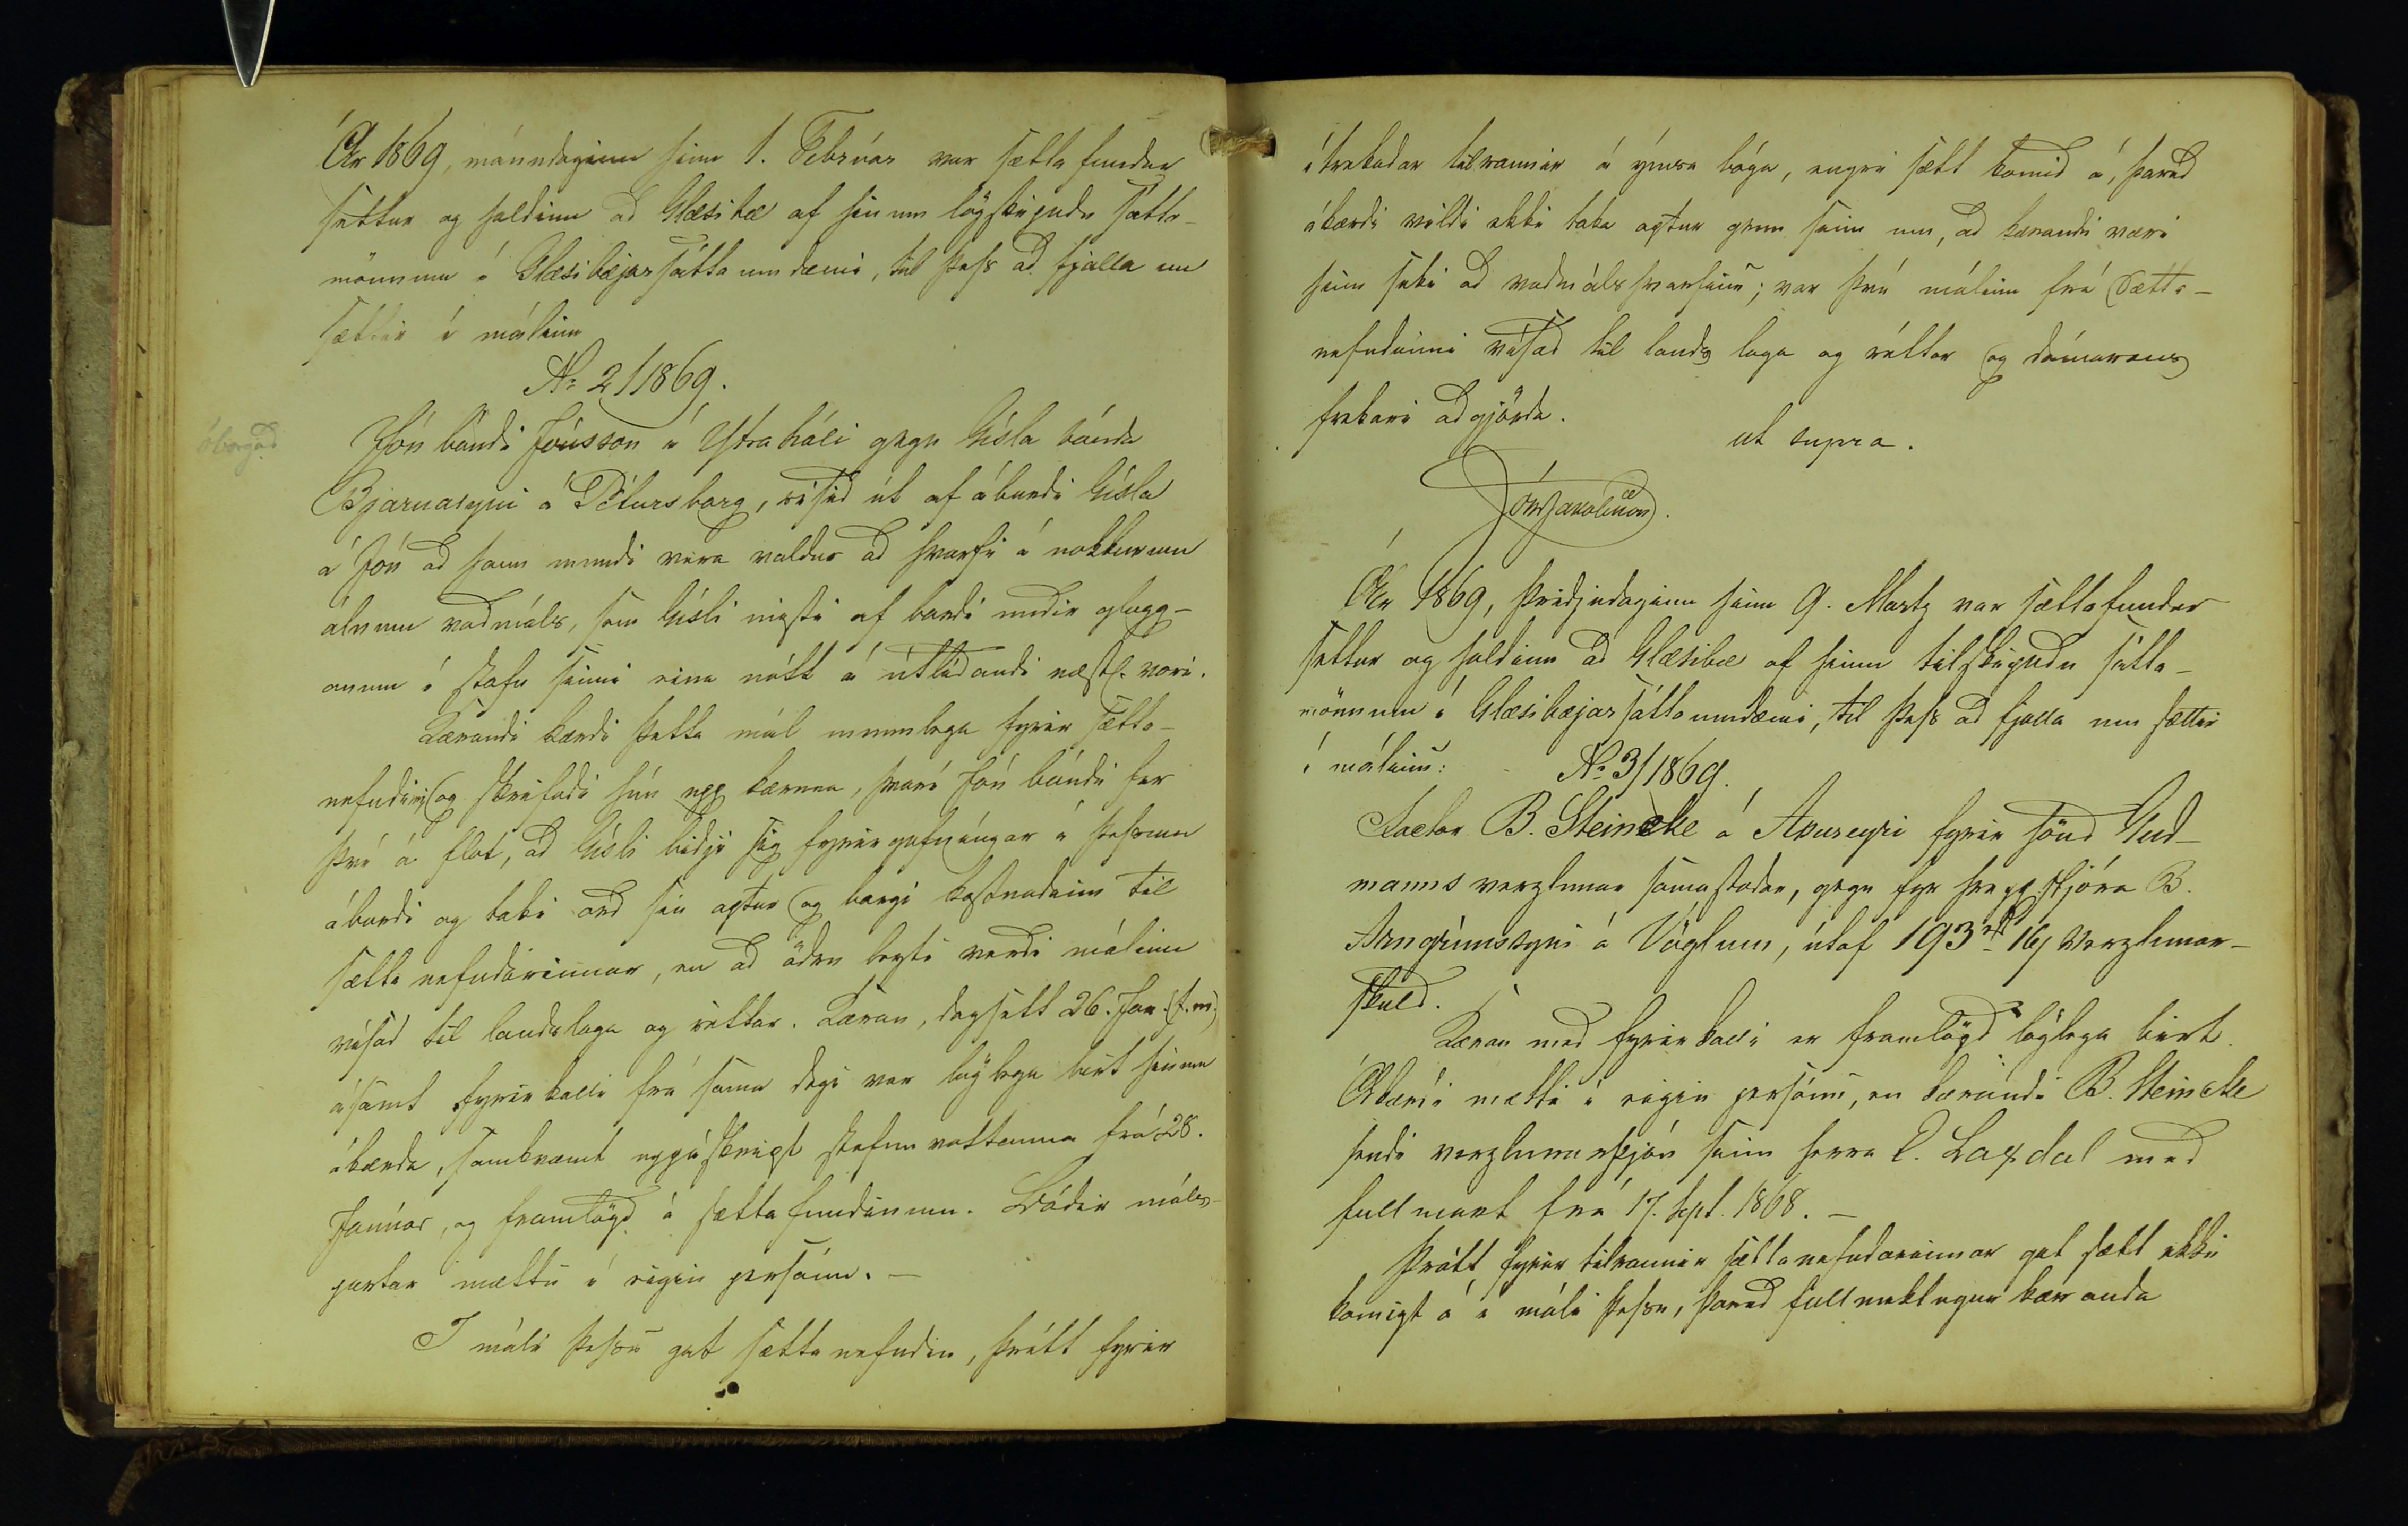 Ár 1869, mánudaginn hinn 1. Febrúar var sættafundur
settur og haldinn að Glæsibæ af hinum lögskipuðu sætta-
mönnum í Glæsibæjarsáttaumdæmi, til þess að fjalla um
sættir í málinu
No 2/1869.
óborgað
Jón bóndi Jónsson á Ytra hóli gegn Gísla bónda
Bjarnasyni á Pétursborg, risið út af áburði Gísla
á Jón að hann mundi vera valdur að hvarfi á nokkurum
álnum vaðmáls, sem Gísli misti af borði undir glugg-
anum í stofu sinni eina nótt á útlíðandi næstl. vori.
Kærandi kærði þetta mál munnlega fyrir sætta-
nefndinni og skrifaði hún upp kæruna, hvarí Jón bóndi fer
því á flot, að Gísli biðji sig fyrirgefníngar á þessum
áburði og taki orð sín aptur og borgi kostnaðinn til
sættanefndarinnar, en að öðru leyti verði málinu
vísað til landslaga og réttar. Kæran, dagsett 26. Jan. (f. m.)
ásamt fyrirkalli frá sama degi var löglega birt hinum
ákærða, samkvæmt uppáskript stefnuvottanna frá 28.
Janúar, og framlögð á sættafundinum. Báðir máls-
partar mættu í eigin persónu. —
I máli þessu gat sættanefndin, þrátt fyrir
ítrekaðar tilraunir á ýmsa lóga, engri sætt komið á, þareð
ákærði vildi ekki taka aptur grun sinn um, að kærandi væri
hinn seki að vaðmálshvarfinu; var því málinu frá sætta-
nefndinni vísað til lands laga og réttar og dómarans
frekari aðgjörða.
ut supra.
Jón Jakobsson.
Ár 1869, þriðjudaginn hinn 9. Martz var sættafundur
settur og haldinn að Glæsibæ af hinum tilskipuðu sátta-
mönnum í Glæsibæjarsáttaumdæmi, til þess að fjalla um sættir
í málinu:
No 3/1869.
Factor B. Steincke á Akureyri fyrir hönd Gud-
manns verzlunar samastaðar, gegn fyr hreppstjóra B.
Arngrímssyni á Vöglum, útaf 193 rd 16 verzlunar-
skuld.
Kæran með fyrirkalli er framlögð löglega birt.
Ákærði mætti í eigin persónu, en kærandi B. Steincke
sendi verzlunarþjón sinn herra E. Laxdal með
fullmakt frá 17. Sept. 1868. —
Þrátt fyrir tilraunir sættanefndarinnar gat sætt ekki
komizt á í máli þessu, þareð fullmektugur kæranda